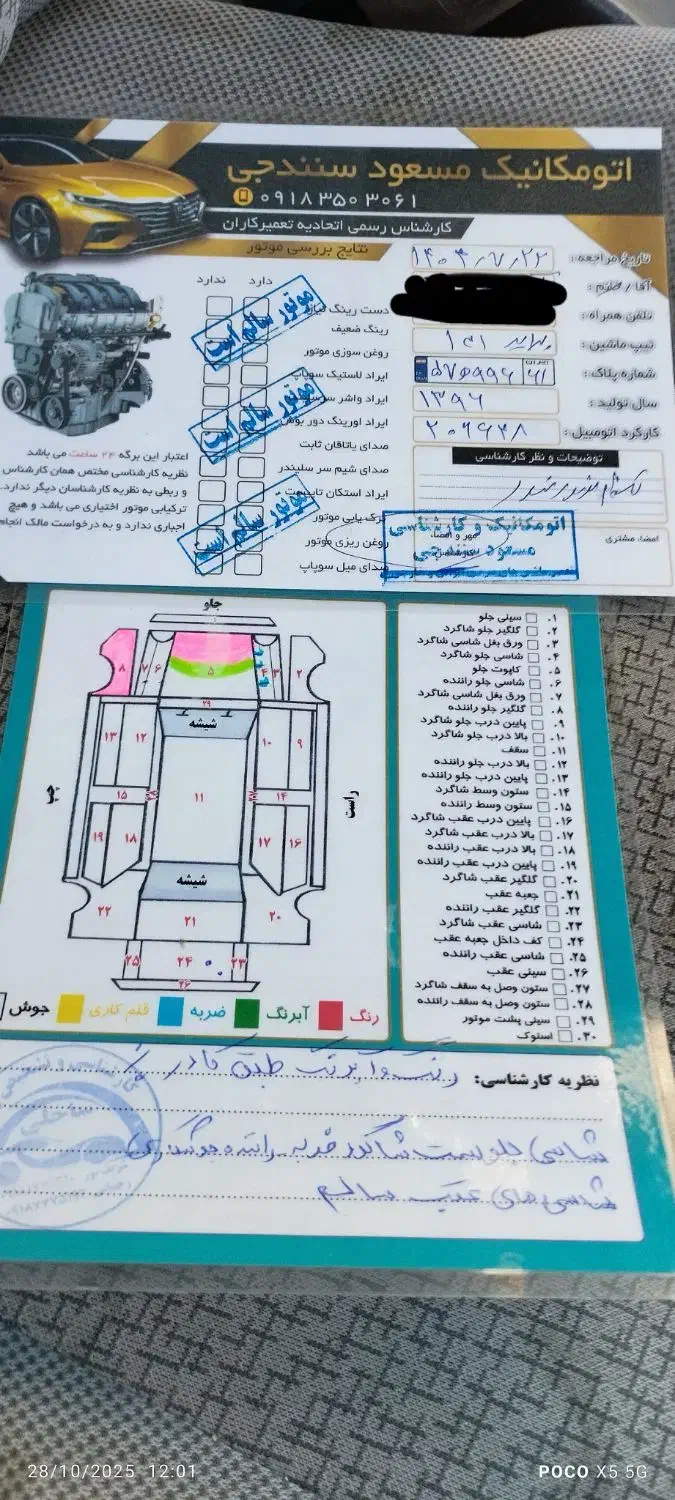 اتومکانیک مسعود سنندجی
۰۹۱۸ ۳۵۰ ۳۰۶۱
کارشناس رسمی اتحادیه تعمیرکاران
نتایج بررسی موتور
تاریخ مراجعه :
آقا / خانم :
تلفن همراه :
تیپ ماشین : پراید ۱۳۱
شماره پلاک :
سال تولید : ۱۳۹۶
کارکرد اتومبیل : ۲۰۶۶۴۸
توضیحات و نظر کارشناسی
امضاء مشتری
مهر و امضاء
کارشناس
اتومکانیک و کارشناسی
مسعود سنندجی
دارد
ندارد
دست رینگ نیاز
رینگ ضعیف
روغن سوزی موتور
ایراد لاستیک سوپاپ
ایراد واشر سرسیلندر
ایراد اورینگ دور بوش
صدای یاتاقان ثابت
صدای شیم سر سلیندر
ایراد استکان تایپیت
ترک یابی موتور
روغن ریزی موتور
صدای میل سوپاپ
موتور سالم است
موتور سالم است
موتور سالم است
اعتبار این برگه ۲۴ ساعت می باشد
نظریه کارشناسی مختص همان کارشناس
و ربطی به نظریه کارشناسان دیگر ندارد.
ترکیابی موتور اختیاری می باشد و هیچ
اجباری ندارد و به درخواست مالک انجام
۱. سینی جلو
۲. گلگیر جلو شاگرد
۳. ورق بغل شاسی شاگرد
۴. شاسی جلو شاگرد
۵. کاپوت جلو
۶. شاسی جلو راننده
۷. ورق بغل شاسی شاگرد
۸. گلگیر جلو راننده
۹. پایین درب جلو شاگرد
۱۰. بالا درب جلو شاگرد
۱۱. سقف
۱۲. بالا درب جلو راننده
۱۳. پایین درب جلو راننده
۱۴. ستون وسط شاگرد
۱۵. ستون وسط راننده
۱۶. پایین درب عقب شاگرد
۱۷. بالا درب عقب شاگرد
۱۸. بالا درب عقب راننده
۱۹. پایین درب عقب راننده
۲۰. گلگیر عقب شاگرد
۲۱. جعبه عقب
۲۲. گلگیر عقب راننده
۲۳. شاسی عقب شاگرد
۲۴. کف داخل جعبه عقب
۲۵. شاسی عقب راننده
۲۶. سینی عقب
۲۷. ستون وصل به سقف شاگرد
۲۸. ستون وصل به سقف راننده
۲۹. سینی پشت موتور
۳۰. استوک
جلو
۸ ۷ ۶ ۵ ۴ ۳ ۲
۲۹
شیشه
۱۳ ۱۲ ۱۰ ۹
چپ
۱۱
راست
۱۵ ۱۴
۱۹ ۱۸ ۱۷ ۱۶
شیشه
۲۲ ۲۱ ۲۰
۲۵ ۲۴ ۲۳
۲۶
رنگ آبرنگ ضربه قلم کاری جوش
نظریه کارشناسی: رنگ و آبرنگ طبق کادر
شاسی جلو سمت شاگرد ضربه راننده جوشکاری
شاسی های عقب سالم
28/10/2025 12:01
POCO X5 5G